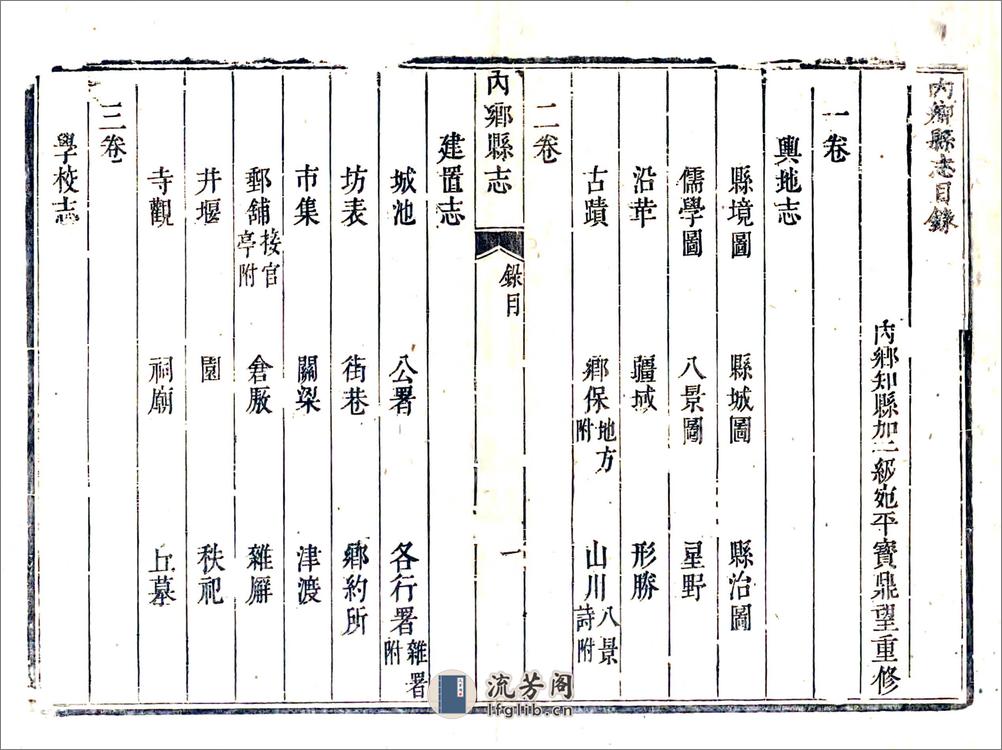 內鄉縣志目錄
內鄉知縣加二級宛平寶鼎望重修
一卷
輿地志
縣境圖 縣城圖 縣治圖
儒學圖 八景圖 星野
沿革 疆域 形勝
古蹟 鄉保地方附 山川八景詩附
二卷
內鄉縣志 目錄 一
建置志
城池 公署 各行署雜署附
坊表 街巷 鄉約所
市集 關梁 津渡
郵舖接官亭附 倉厫 雜廨
井堰 園 秩祀
寺觀 祠廟 丘墓
三卷
學校志
流芳阁
lfglib.cn